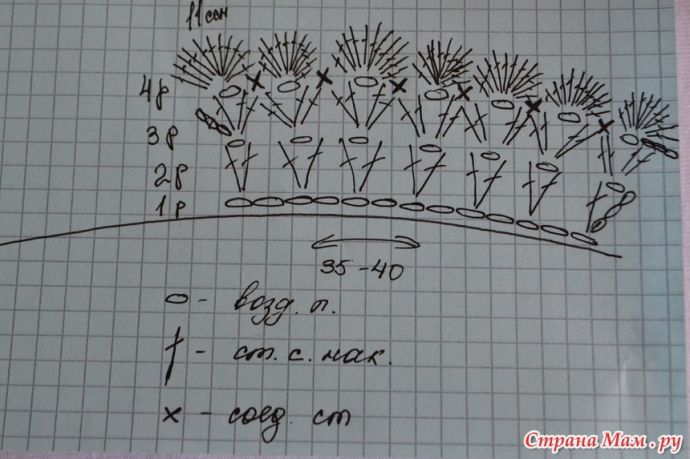 11 ссн
4 р
3 р
2 р
1 р
35-40
- возд. п.
- ст. с. нак.
х - соед. ст
Страна Мам.ру